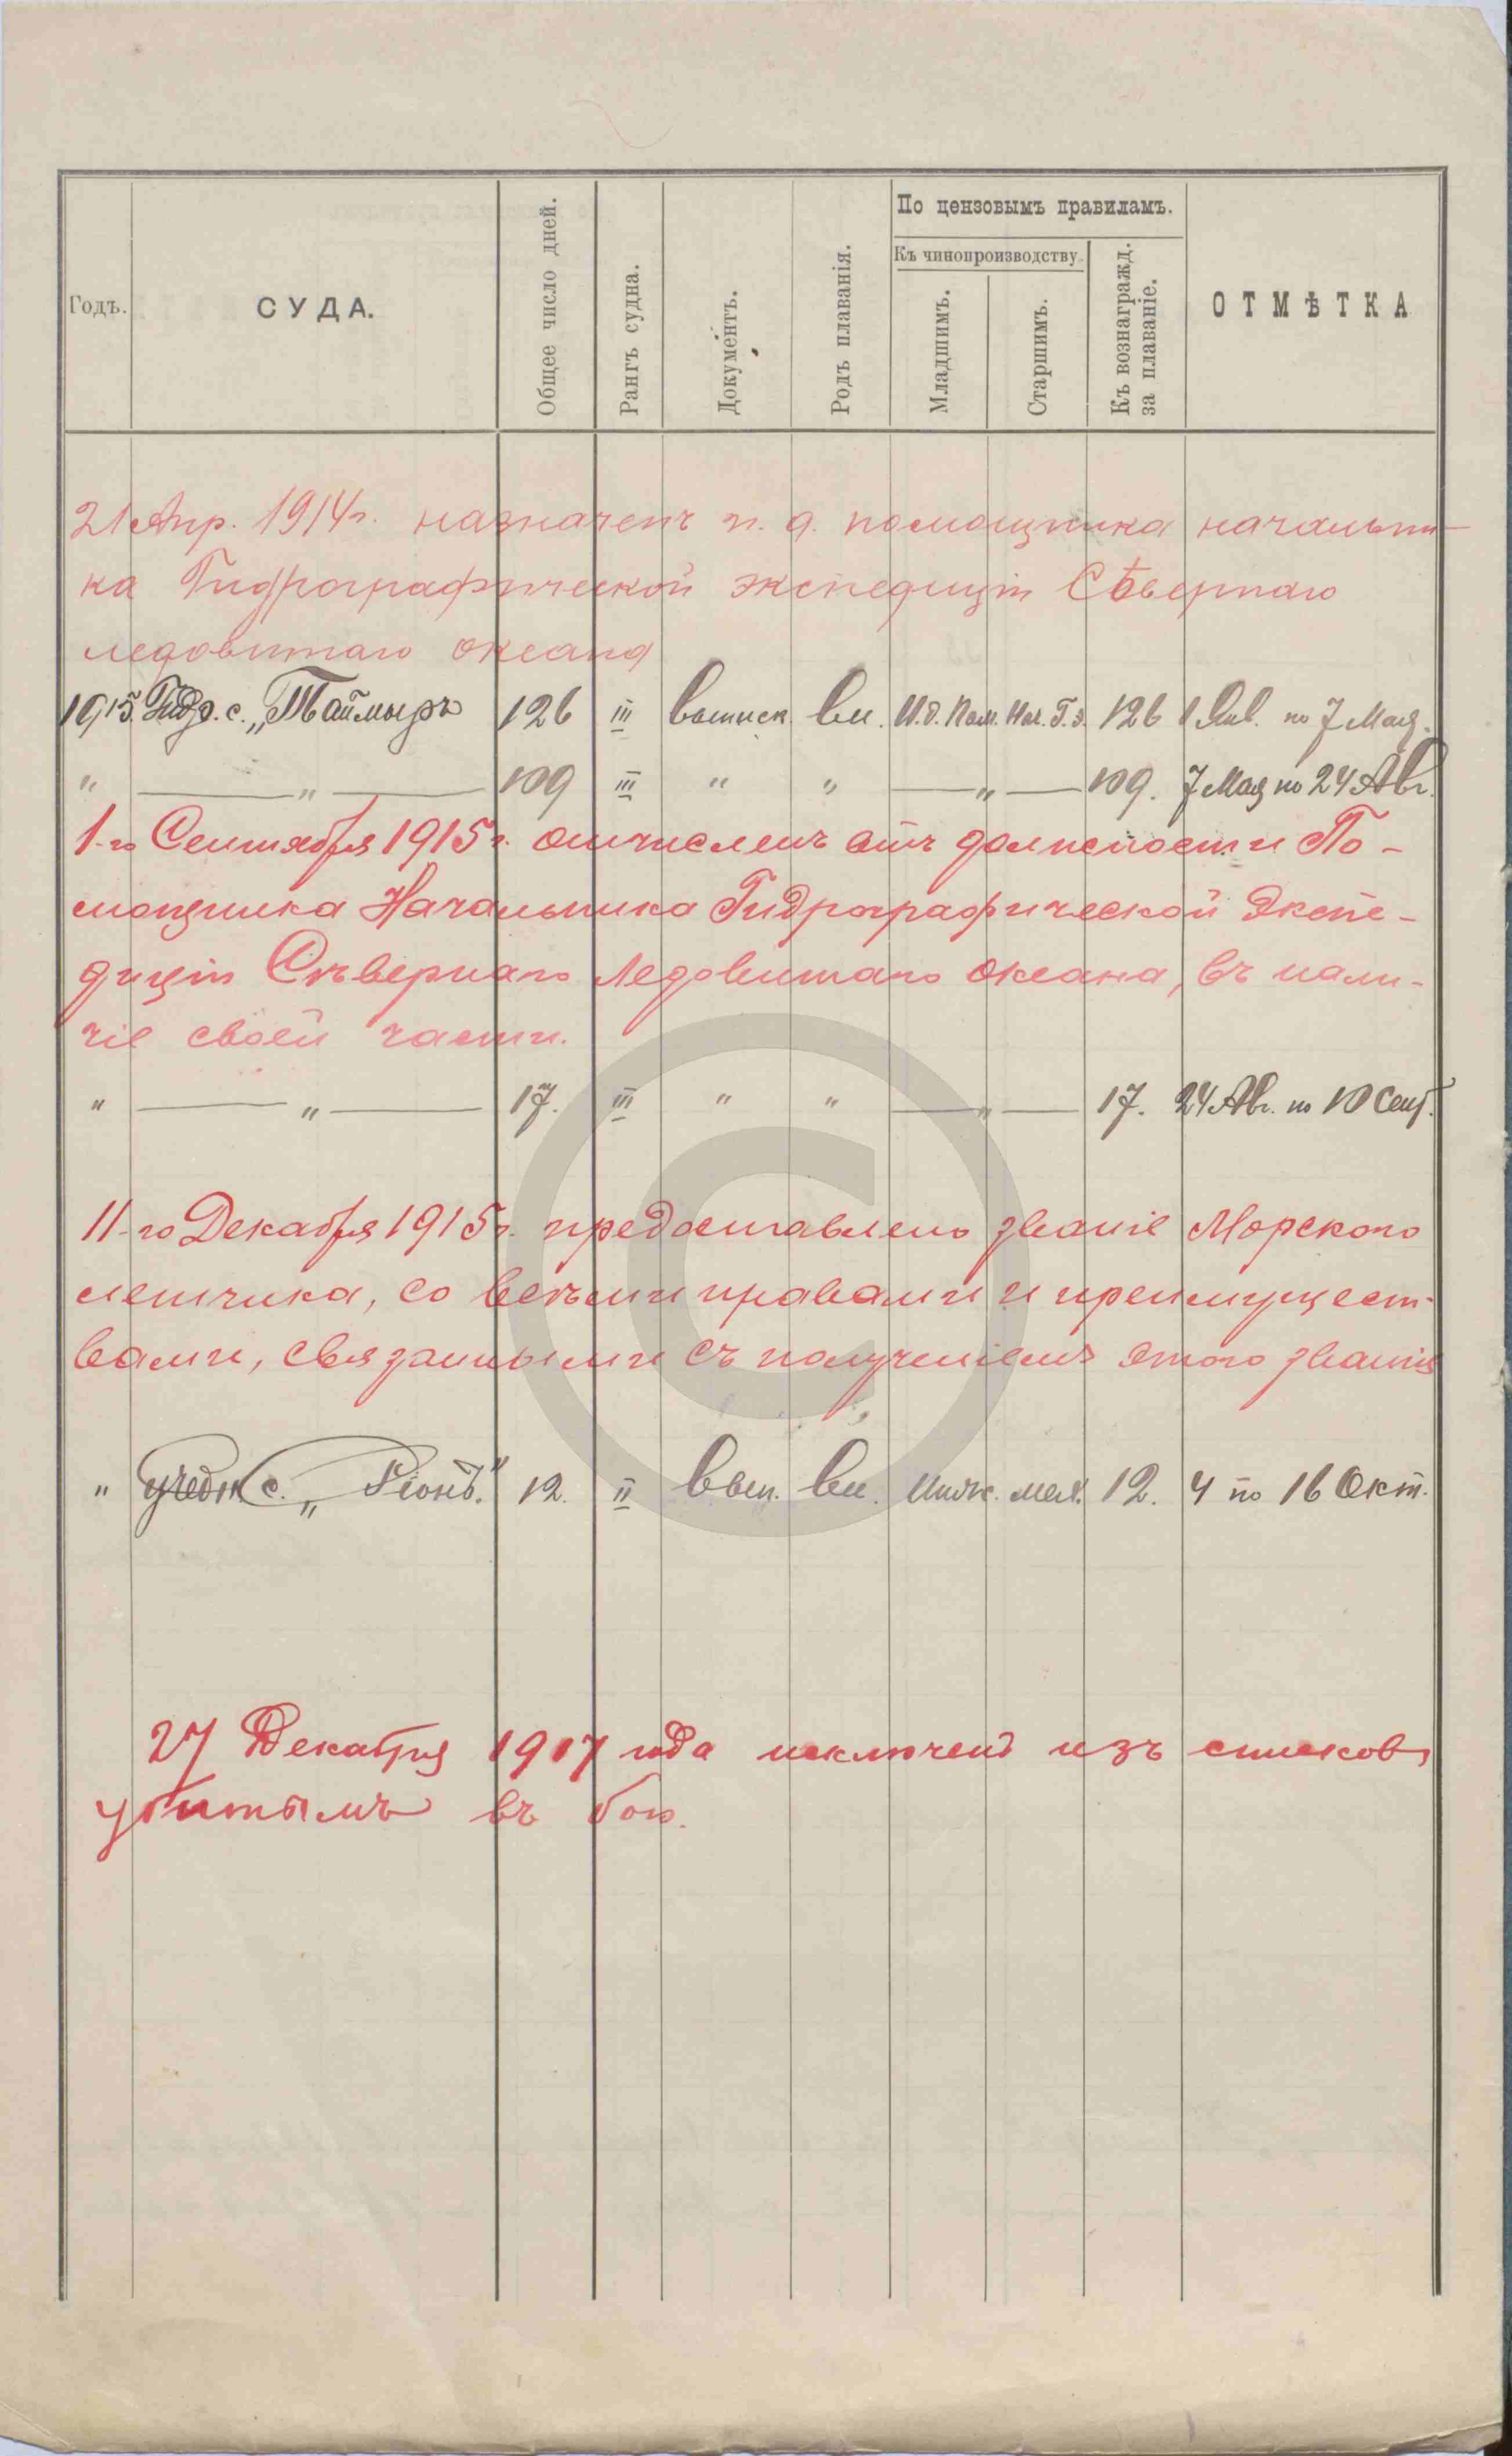 Годъ.
СУДА.
Общее число дней.
Рангъ судна.
Документъ.
Родъ плаванія.
По цензовымъ правиламъ.
Къ чинопроизводству.
Младшимъ.
Старшимъ.
Къ вознагражд. за плаваніе.
ОТМѢТКА
21 Апр. 1914 г. назначенъ и. д. помощника начальни-
ка Гидрографической экспедиціи Сѣвернаго
ледовитаго океана
1915 Гидр. с. „Таймыръ 126 III выписк. вн. И.д. Пом. Нач. Г.э. 126 1 Янв. по 7 Мая.
" — „ — 109 III " " — „ — 109. 7 Мая по 24 Авг.
1-го Сентября 1915 г. отчисленъ отъ должности По-
мощника Начальника Гидрографической Экспе-
диціи Сѣвернаго Ледовитаго Океана, въ нали-
чіе своей части.
" — „ — 17. III " " — „ — 17. 24 Авг. по 10 Сент.
11-го Декабря 1915 г. предоставлено званіе Морского
летчика, со всѣми правами и преимущест-
вами, связанными съ полученіемъ этого званія
" Учебн. с. „Ріонъ." 12. II Вып. вн. 12. 4 по 16 Окт.
27 Декабря 1917 года исключенъ изъ списковъ
убитымъ въ бою.
©